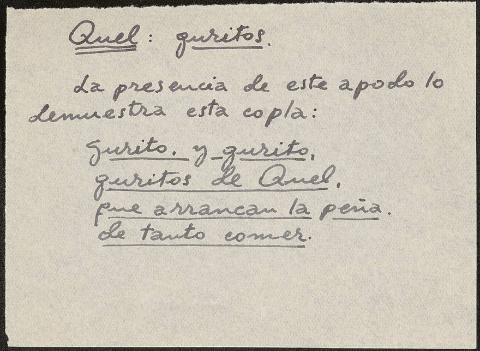 Quel: guritos.
La presencia de este apodo lo
demuestra esta copla:
Gurito, y gurito,
guritos de Quel,
que arrancan la peña.
de tanto comer.